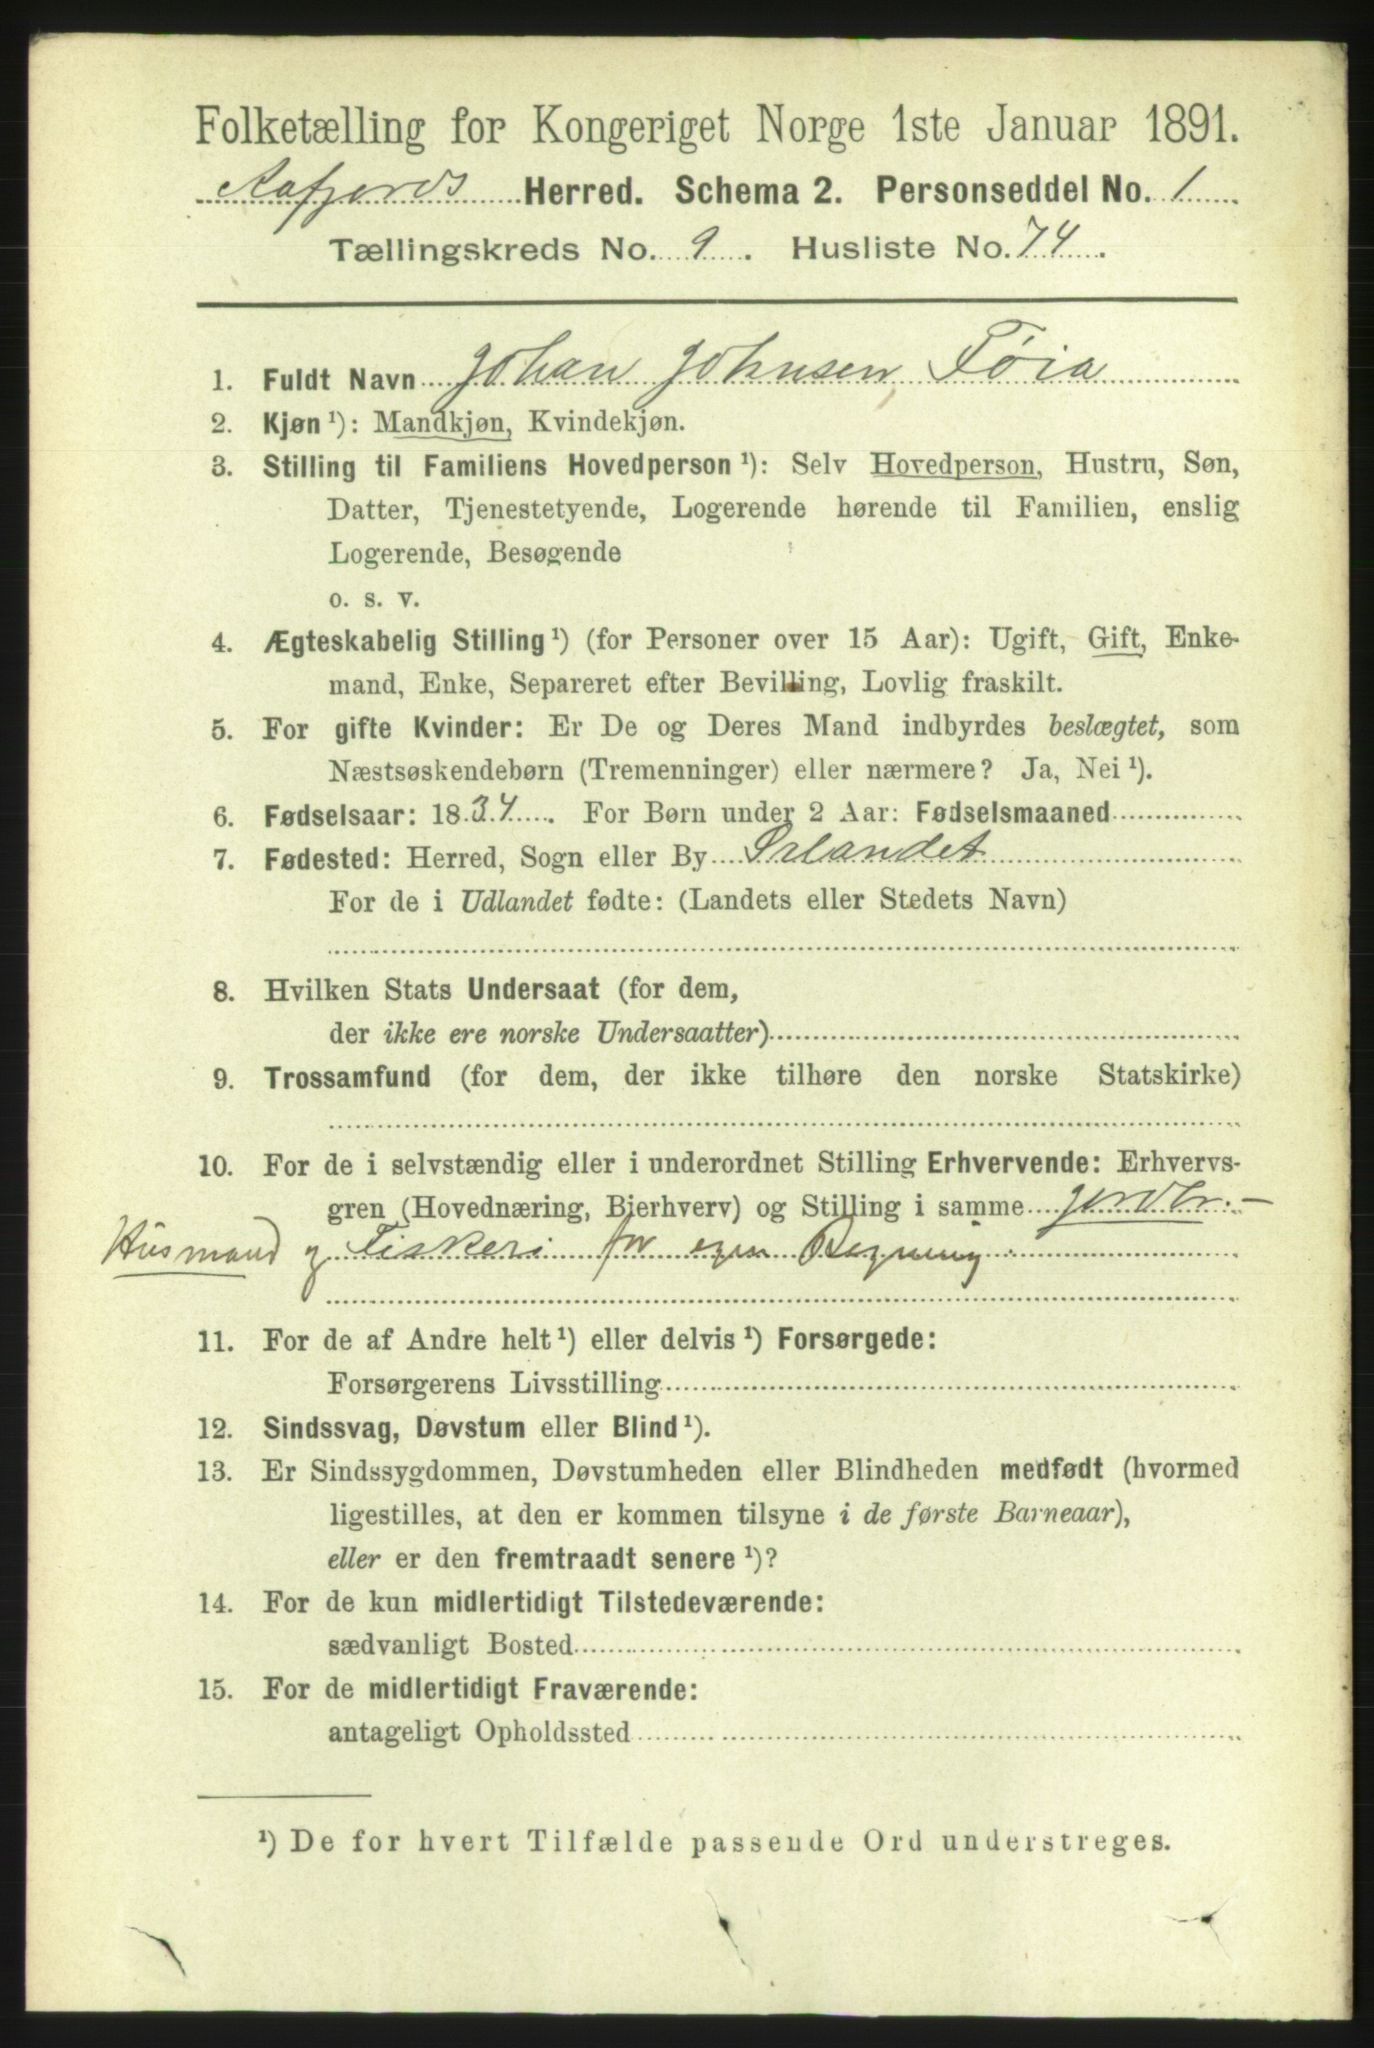 Folketælling for Kongeriget Norge 1ste Januar 1891.
Aafjords Herred. Schema 2. Personseddel No. 1
Tællingskreds No. 9. Husliste No. 74.
1. Fuldt Navn Johan Johnsen Føia
2. Kjøn ¹): Mandkjøn, Kvindekjøn.
3. Stilling til Familiens Hovedperson ¹): Selv Hovedperson, Hustru, Søn,
Datter, Tjenestetyende, Logerende hørende til Familien, enslig
Logerende, Besøgende
o. s. v.
4. Ægteskabelig Stilling ¹) (for Personer over 15 Aar): Ugift, Gift, Enke-
mand, Enke, Separeret efter Bevilling, Lovlig fraskilt.
5. For gifte Kvinder: Er De og Deres Mand indbyrdes beslægtet, som
Næstsøskendebørn (Tremenninger) eller nærmere? Ja, Nei ¹).
6. Fødselsaar: 1834. For Børn under 2 Aar: Fødselsmaaned
7. Fødested: Herred, Sogn eller By Ørlandet
For de i Udlandet fødte: (Landets eller Stedets Navn)
8. Hvilken Stats Undersaat (for dem,
der ikke ere norske Undersaatter)
9. Trossamfund (for dem, der ikke tilhøre den norske Statskirke)
10. For de i selvstændig eller i underordnet Stilling Erhvervende: Erhvervs-
gren (Hovednæring, Bierhverv) og Stilling i samme Jordbr.-
Husmand og Fiskeri for egen Regning
11. For de af Andre helt ¹) eller delvis ¹) Forsørgede:
Forsørgerens Livsstilling
12. Sindssvag, Døvstum eller Blind ¹).
13. Er Sindssygdommen, Døvstumheden eller Blindheden medfødt (hvormed
ligestilles, at den er kommen tilsyne i de første Barneaar),
eller er den fremtraadt senere ¹)?
14. For de kun midlertidigt Tilstedeværende:
sædvanligt Bosted
15. For de midlertidigt Fraværende:
antageligt Opholdssted
¹) De for hvert Tilfælde passende Ord understreges.